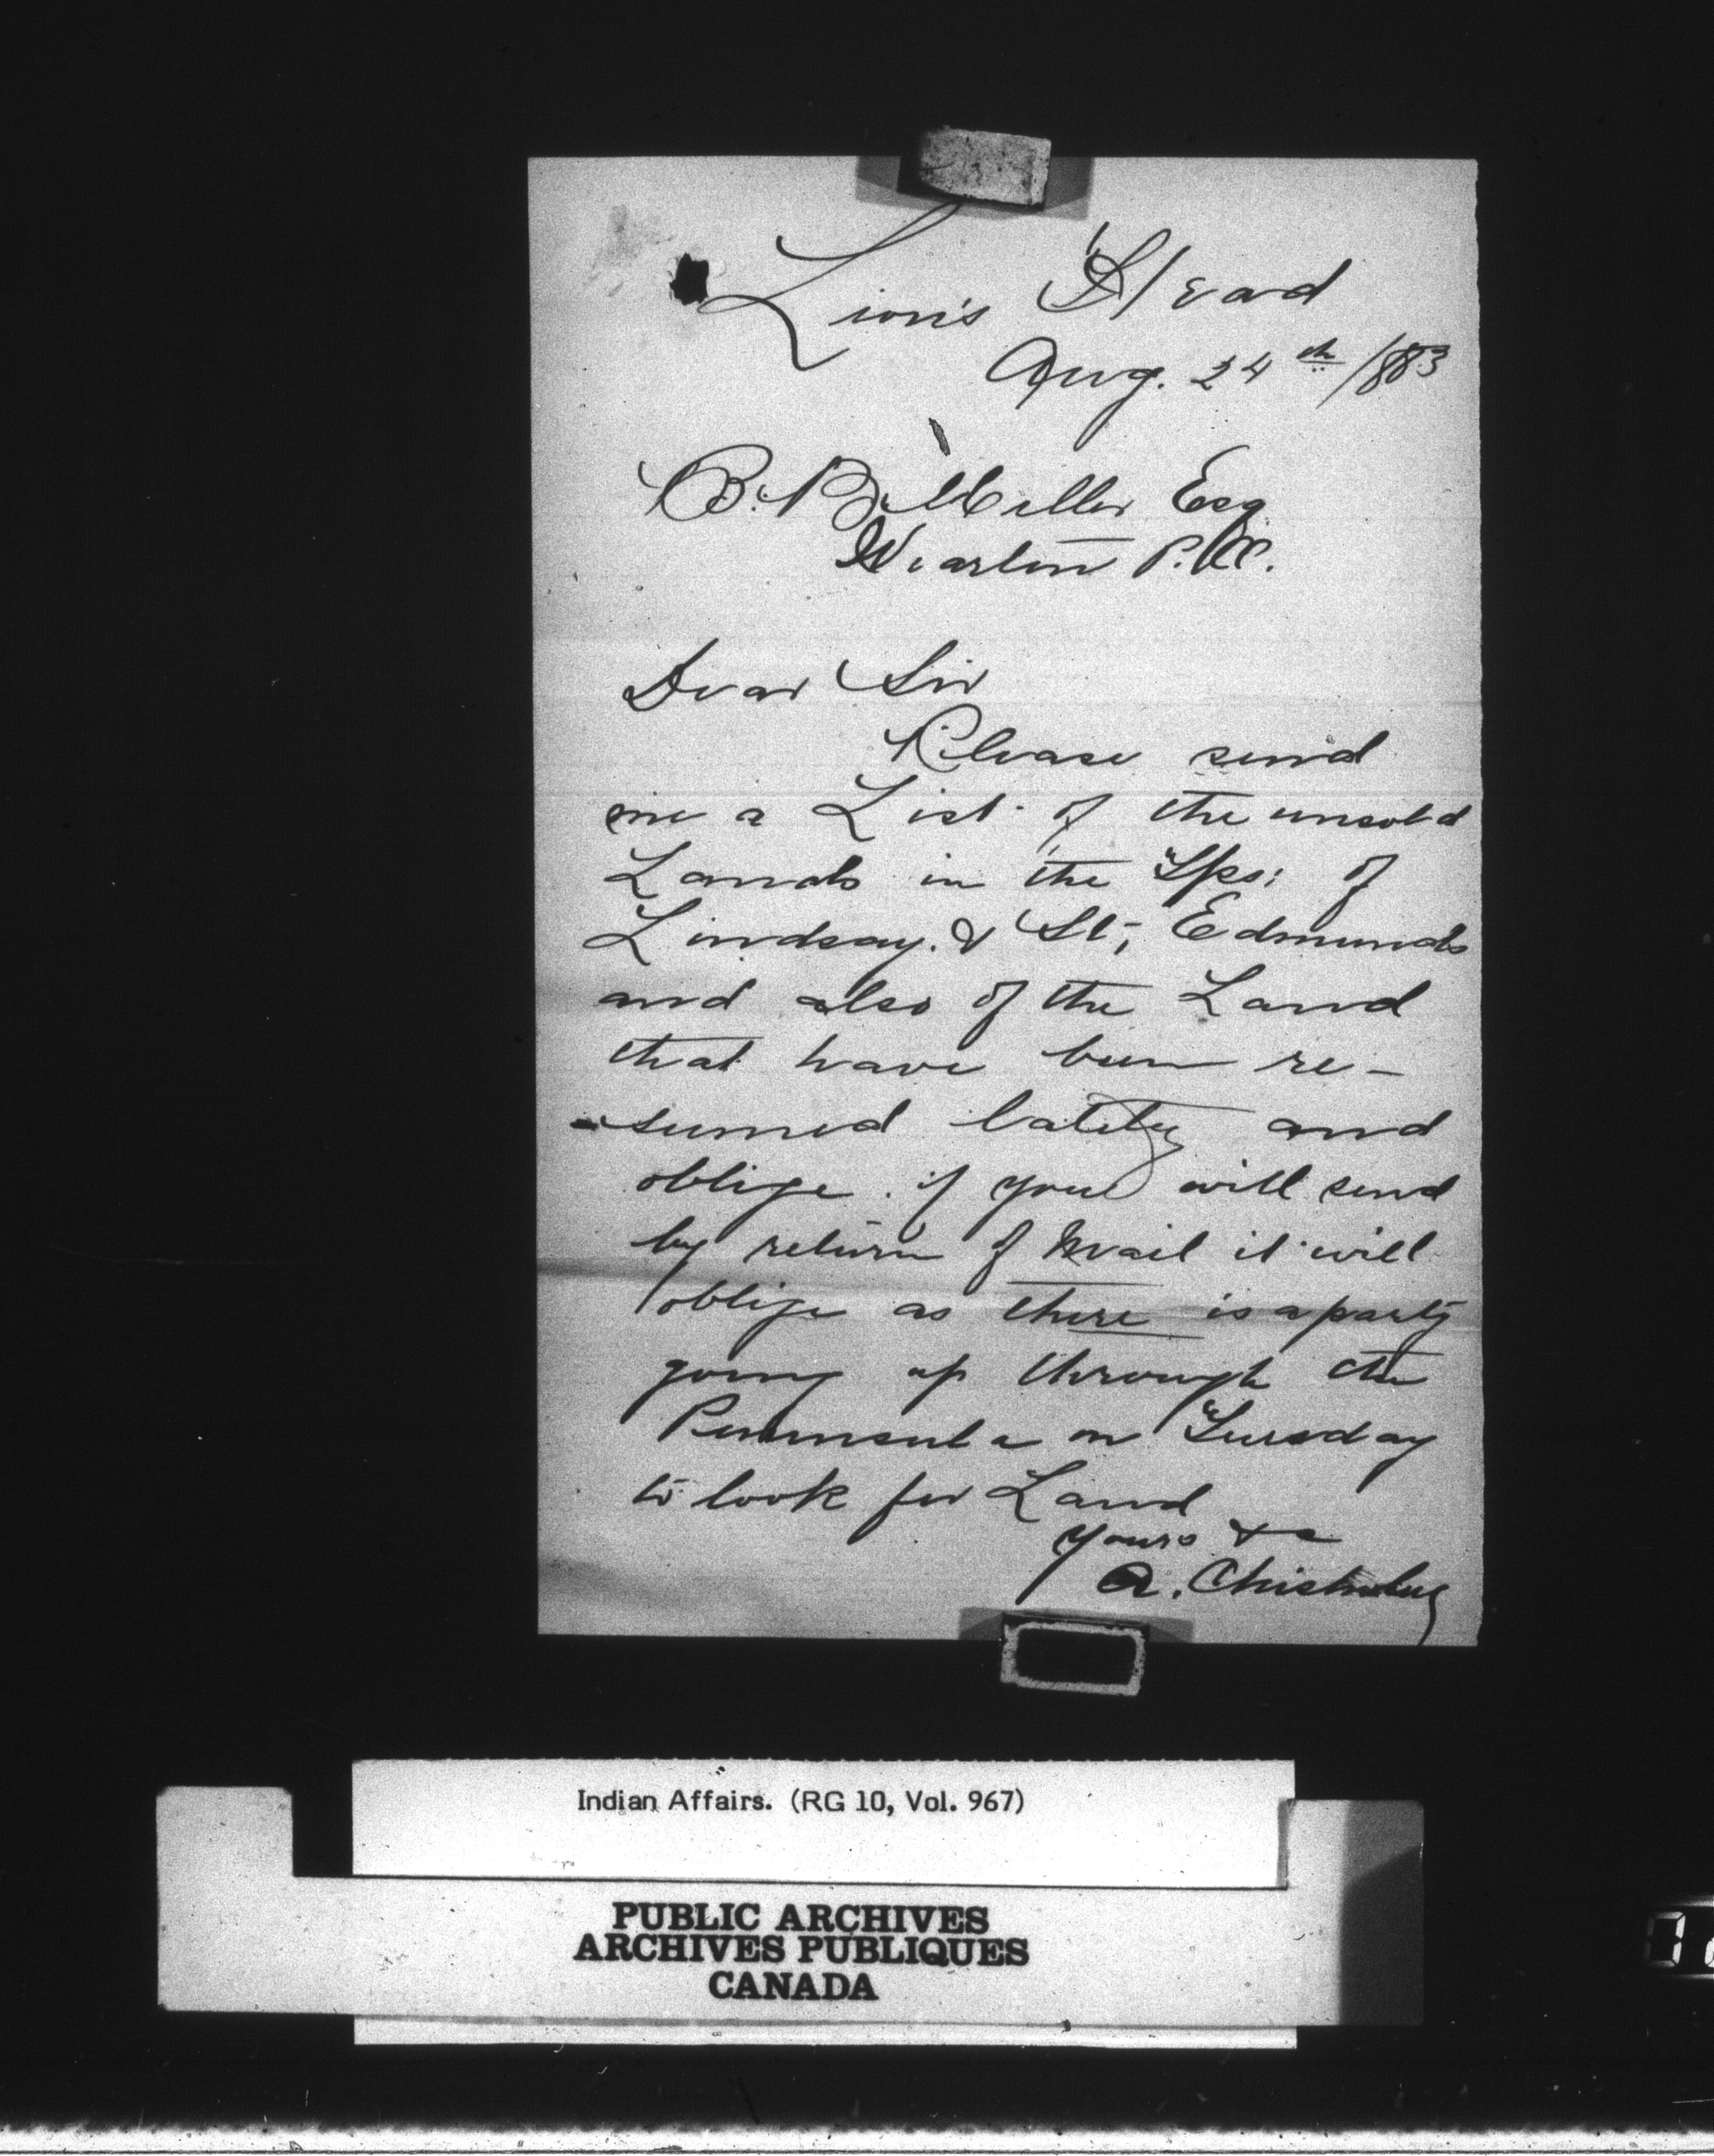 Lion's Head
Aug. 24th /883
B. B. Miller Esq
Wiarton P.O.
Dear Sir
Please send
me a List of the unsold
Lands in the Tps: of
Lindsay. & St, Edmunds
and also of the Land
that have been re-
sumed lately and
oblige. if you will send
by return of Mail it will
oblige as there is a party
going up through the
Peninsula on Tuesday
to look for Land
yours &c
A. Chisholm
Indian Affairs. (RG 10, Vol. 967)
PUBLIC ARCHIVES
ARCHIVES PUBLIQUES
CANADA